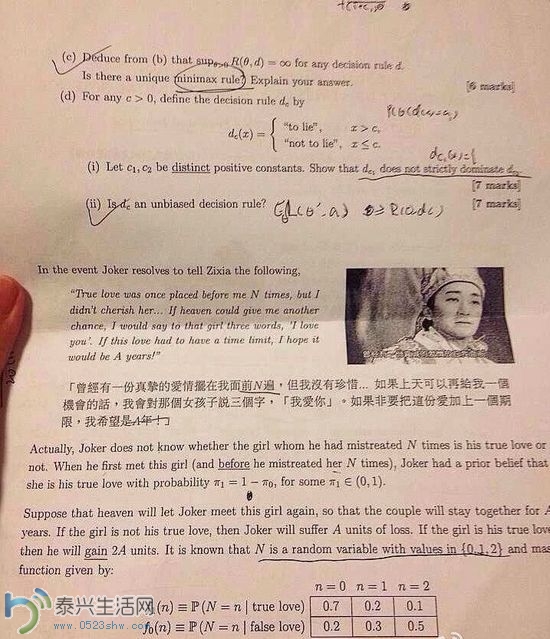 (c) Deduce from (b) that sup_{θ>0} R(θ, d) = ∞ for any decision rule d.
Is there a unique minimax rule? Explain your answer.
[6 marks]
(d) For any c > 0, define the decision rule d_c by
d_c(x) = { "to lie", x > c,
"not to lie", x ≤ c.
(i) Let c₁, c₂ be distinct positive constants. Show that d_{c₁} does not strictly dominate d_{c₂}.
[7 marks]
(ii) Is d_c an unbiased decision rule?
[7 marks]
In the event Joker resolves to tell Zixia the following,
"True love was once placed before me N times, but I
didn't cherish her... If heaven could give me another
chance, I would say to that girl three words, 'I love
you'. If this love had to have a time limit, I hope it
would be A years!"
「曾經有一份真摯的愛情擺在我面前N遍，但我沒有珍惜... 如果上天可以再給我一個
機會的話，我會對那個女孩子說三個字，「我愛你」。如果非要把這份愛加上一個期
限，我希望是A年！」
Actually, Joker does not know whether the girl whom he had mistreated N times is his true love or
not. When he first met this girl (and before he mistreated her N times), Joker had a prior belief that
she is his true love with probability π₁ = 1 − π₀, for some π₁ ∈ (0, 1).
Suppose that heaven will let Joker meet this girl again, so that the couple will stay together for A
years. If the girl is not his true love, then Joker will suffer A units of loss. If the girl is his true love
then he will gain 2A units. It is known that N is a random variable with values in {0,1,2} and mas
function given by:
n = 0 n = 1 n = 2
f₁(n) ≡ P(N = n | true love) 0.7 0.2 0.1
f₀(n) ≡ P(N = n | false love) 0.2 0.3 0.5
泰兴生活网
www.0523shw.com